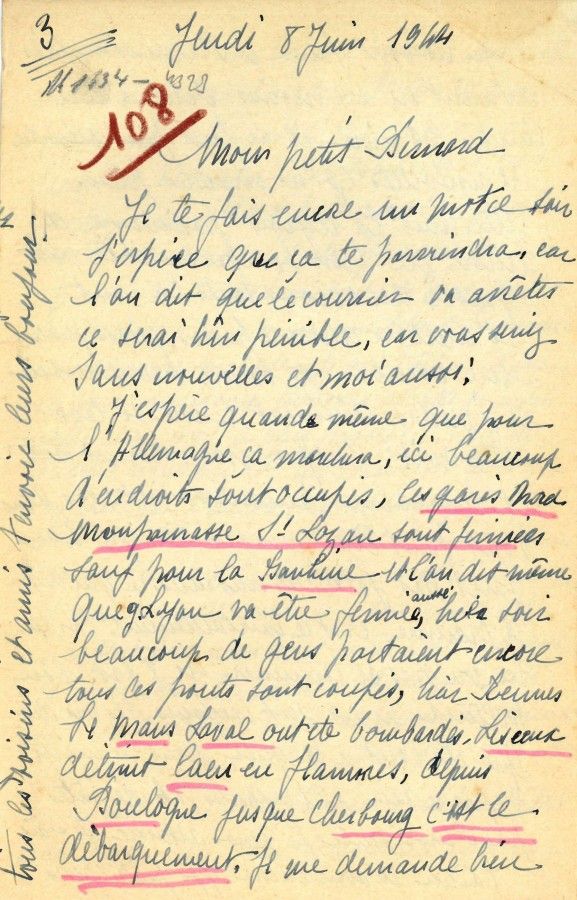 3
Jeudi 8 Juin 1944
108
Mon petit Bernard
Je te fais encore un mot ce soir
j'espère que ça te parviendra, car
l'on dit que le courrier va arrêter
ce serai bien pénible, car vous seriez
sans nouvelles et moi aussi.
J'espère quande même que pour
l'Allemagne ça marchera, ici beaucoup
d'endroits sont occupés, les gares Nord
Monparnasse St Lazare sont fermées
sauf pour la Banlieue et l'on dit même
que g. Lyon va être fermée aussi, hier soir
beaucoup de gens partaient encore
tous les ponts sont coupés, hier Rennes
Le Mans Laval ont été bombardés. Lisieux
détruit Caen en flammes, depuis
Boulogne jusque Cherbourg c'est le
débarquement. Je me demande bien
tous les voisins et amis t'envoie leurs bonjour